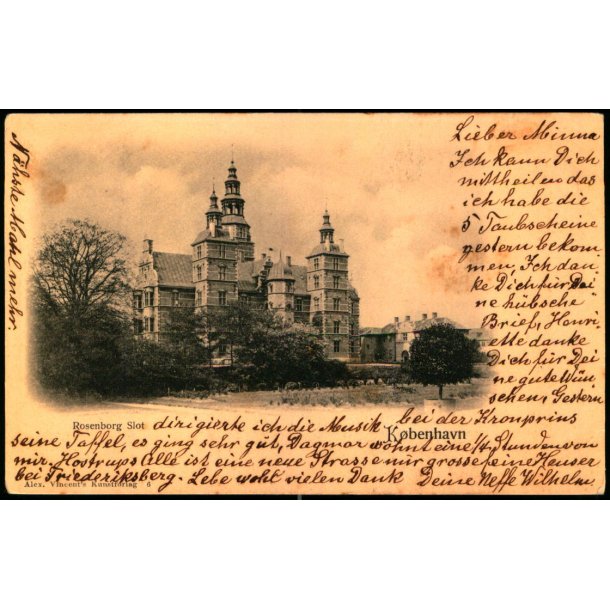 Lieber Minna
Ich kann Dich
mittheilen das
ich habe die
5 Taubscheine
gestern bekom
men, Ich dan
ke Dich für Dei
ne hübsche
Brief, Henri
ette danke
Dich für Dei
ne gute Wün
schen, Gestern
dirigierte ich die Musik bei der Kronprins
seine Taffel, es ging sehr gut, Dagmar wohnt eine 1/4 Stunden von
mir. Hostrups Alle ist eine neue Strasse mir grosse feine Heuser
bei Friederiksberg. Lebe wohl vielen Dank Deine Neffe Wilhelm.
Nähste Mahl mehr.
Rosenborg Slot
København
Alex. Vincent's Kunstforlag 6